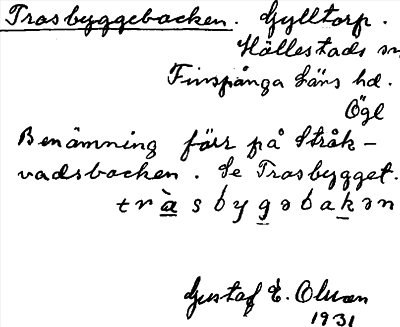 Trasbyggebacken. Gylltorp.
Hällestads sn
Finspånga läns hd.
Ögl
Benämning förr på Stråk-
vadsbacken. Se Trasbygget.
tràsbygəbakən
Gustaf E. Olsson
1931